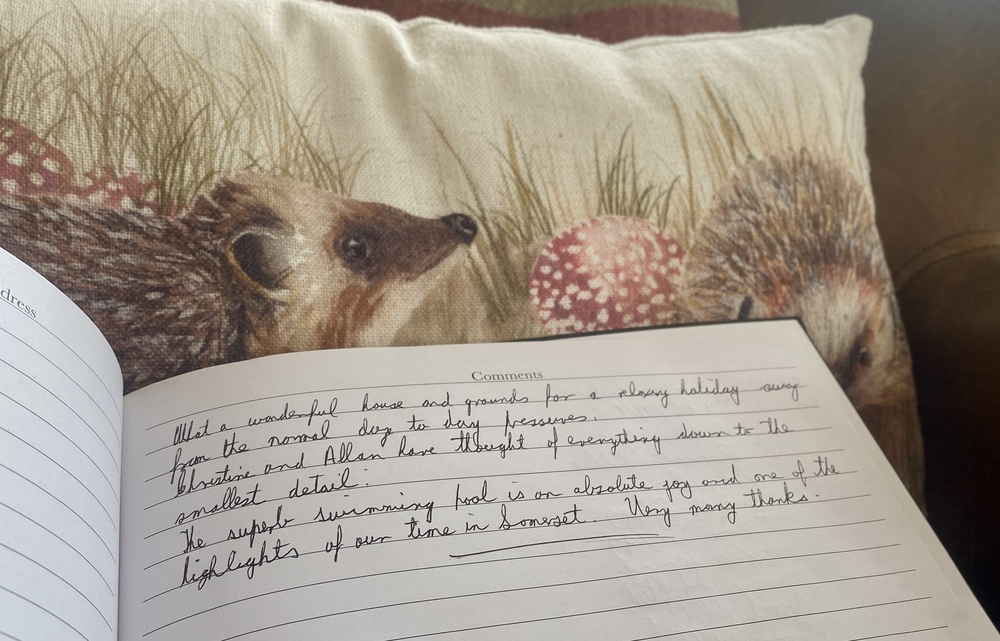 dress
Comments
What a wonderful house and grounds for a relaxing holiday away
from the normal day to day pressures.
Christine and Allan have thought of everything down to the
smallest detail.
The superb swimming pool is an absolute joy and one of the
highlights of our time in Somerset. Very many thanks.